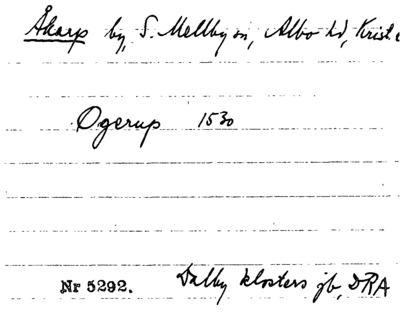 Åkarp by, S. Mellby sn, Albo hd, Krist.
Ogerup 1530
Nr 5292. Dalby klosters jb, DRA